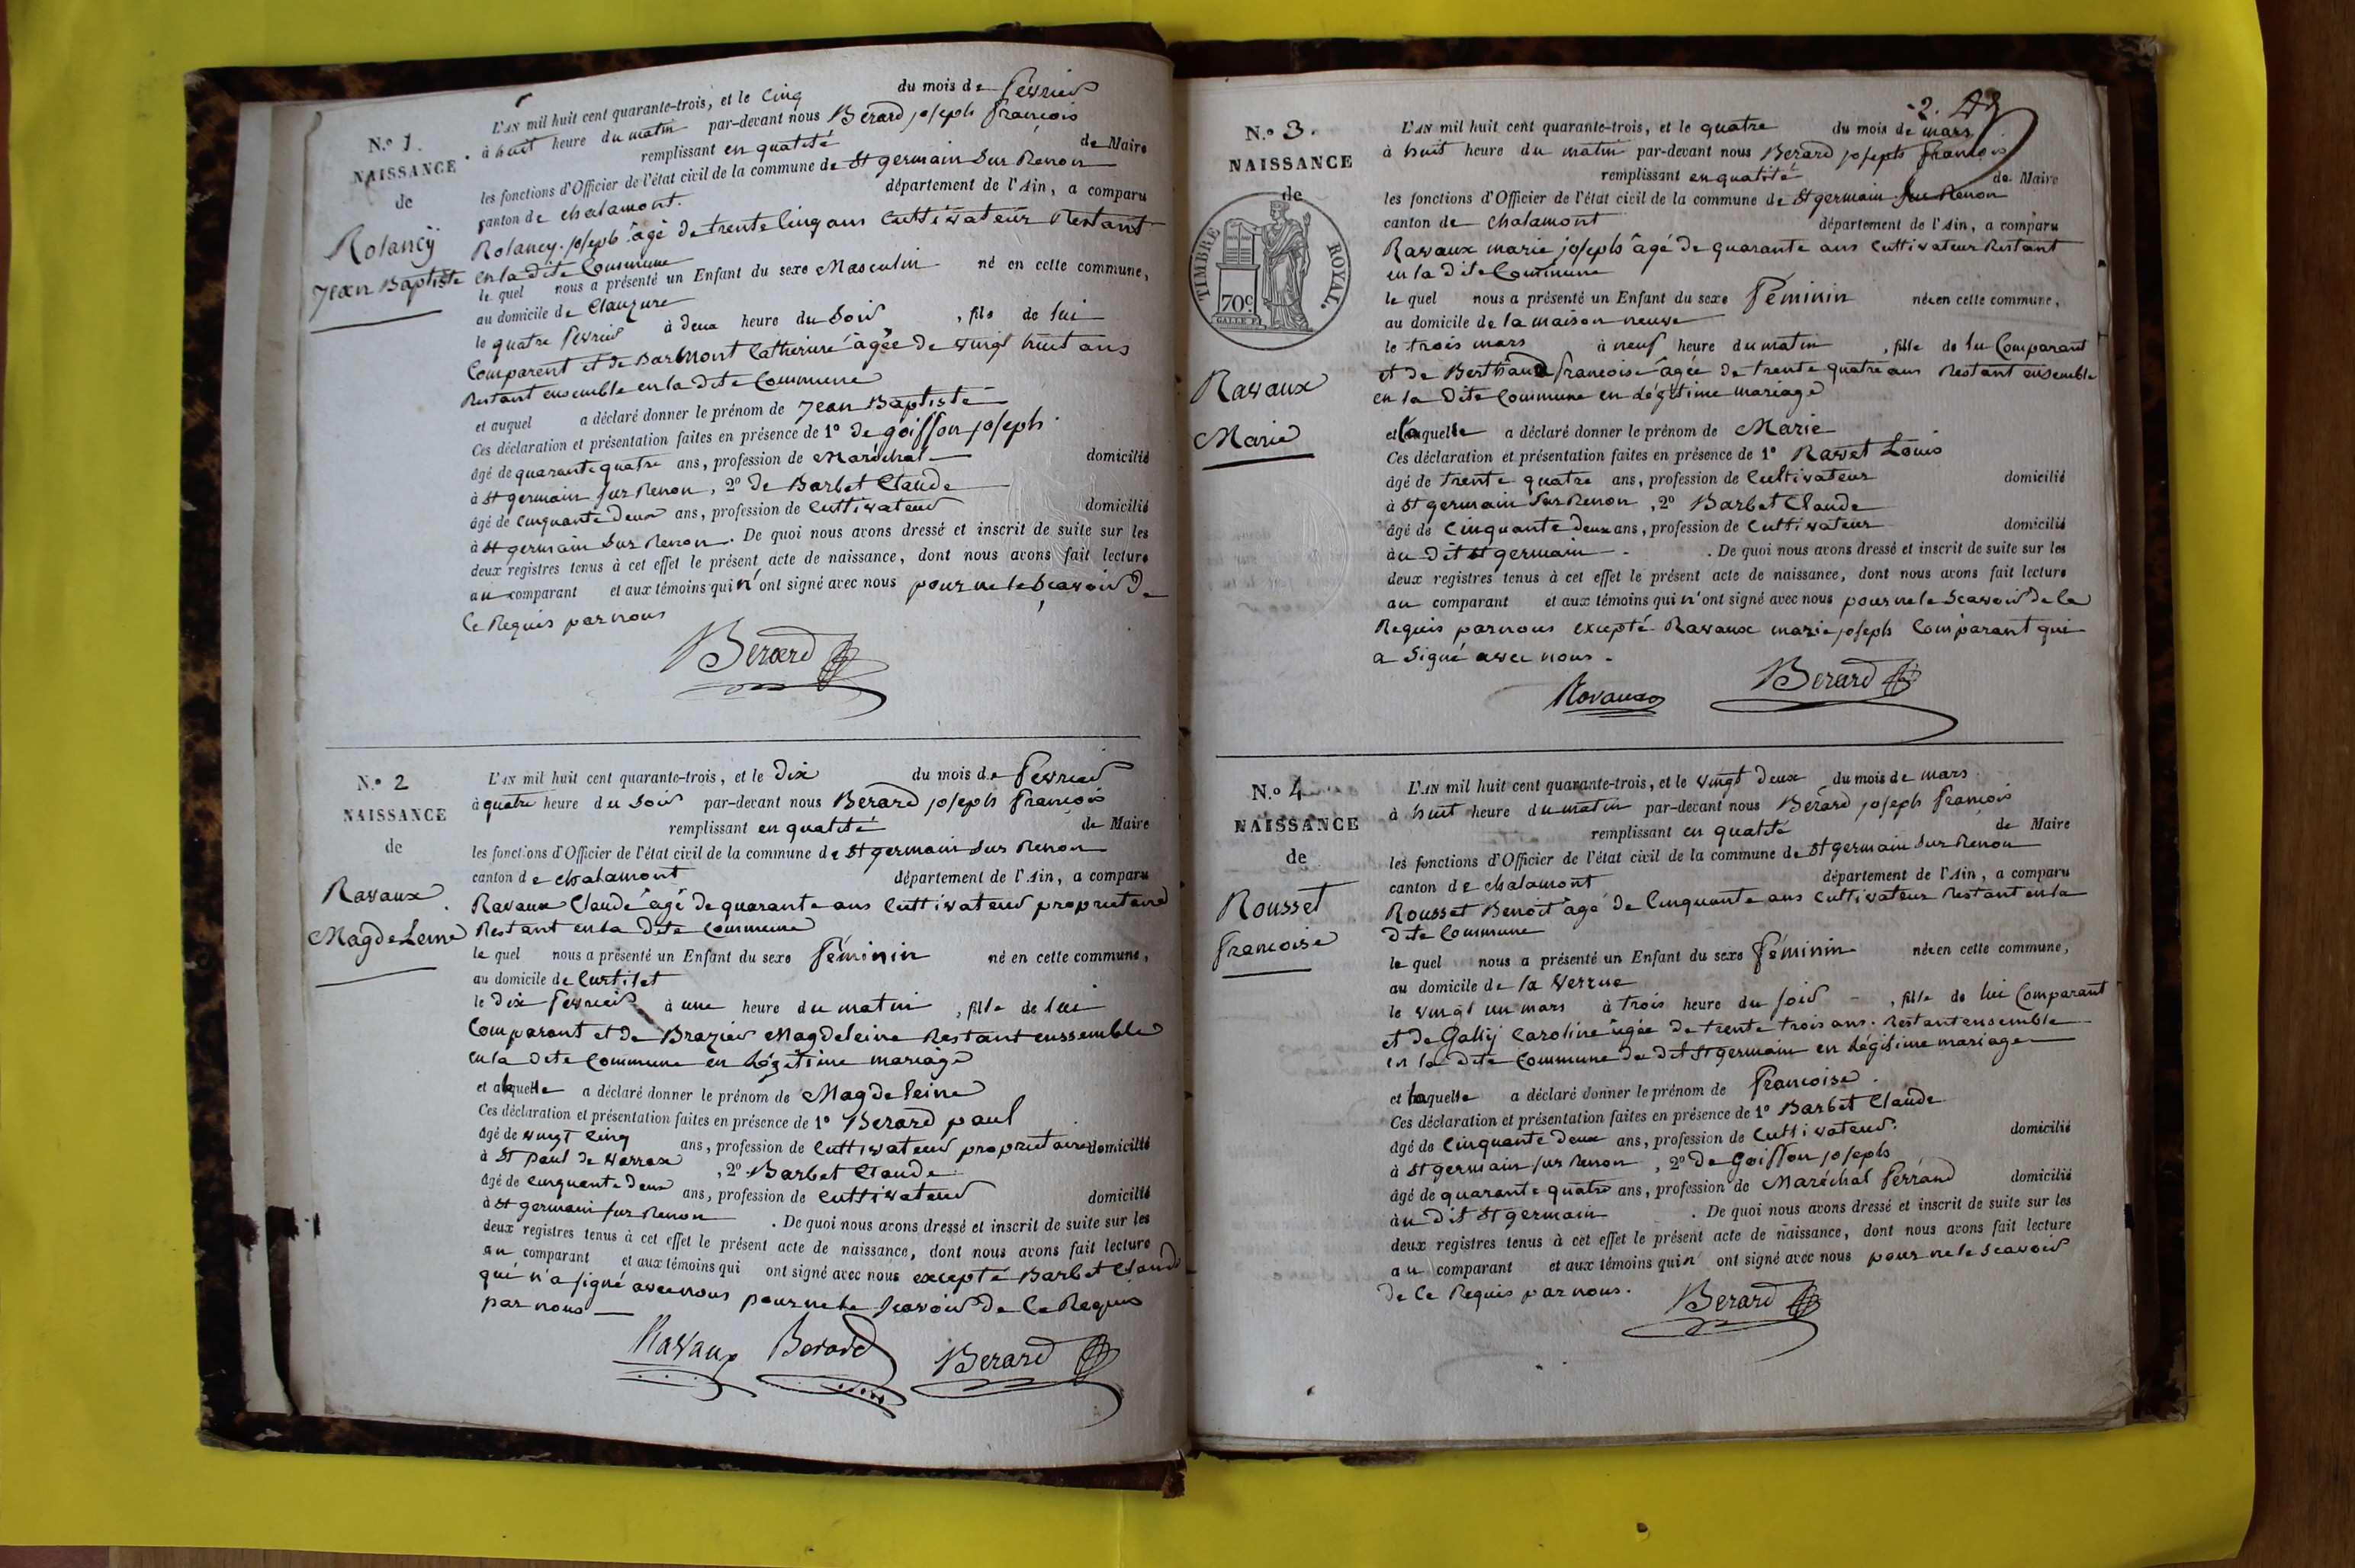 N.º 1.
NAISSANCE
de
Rolancÿ
Jean Baptiste
L'AN mil huit cent quarante-trois, et le cinq du mois de février
à huit heure du matin par-devant nous Bérard joseph françois
remplissant en qualité de Maire
les fonctions d'Officier de l'état civil de la commune de St germain Sur Renon
canton de chalamont. département de l'Ain, a comparu
Rolancy joseph âgé de trente cinq ans Cultivateur Restant
en la dite Commune
le quel nous a présenté un Enfant du sexe Masculin né en cette commune,
au domicile de Clauzure
le quatre fevrier à deux heure du Soir, fils de lui
Comparent et de Barbmont Catherine âgée de vingt huit ans
Restant ensemble en la dite Commune
et auquel a déclaré donner le prénom de Jean Baptiste
Ces déclaration et présentation faites en présence de 1º de goisson joseph
âgé de quarante quatre ans, profession de Maréchal domicilié
à St germain sur Renon, 2º de Barbet Claude
âgé de Cinquante deux ans, profession de Cultivateur domicilié
à St germain Sur Renon. De quoi nous avons dressé et inscrit de suite sur les
deux registres tenus à cet effet le présent acte de naissance, dont nous avons fait lecture
au comparant et aux témoins qui n'ont signé avec nous pour ne le Scavoir De
Ce Requis par nous
Berard
N.º 2
NAISSANCE
de
Ravaux
Magdeleine
L'AN mil huit cent quarante-trois, et le Dix du mois de fevrier
à quatre heure du Soir par-devant nous Berard joseph françois
remplissant en qualité de Maire
les fonctions d'Officier de l'état civil de la commune de St germain Sur Renon
canton de chalamont département de l'Ain, a comparu
Ravaux Claude âgé de quarante ans Cultivateur propriétaire
Restant en la Dite Commune
le quel nous a présenté un Enfant du sexe féminin né en cette commune,
au domicile de Curtilet
le Dix fevrier à une heure du matin, fille de lui
Comparant et de Brazier Magdeleine Restant enssemble
en la Dite Commune en Légitime mariage
et alaquelle a déclaré donner le prénom de Magdeleine
Ces déclaration et présentation faites en présence de 1º Berard paul
âgé de vingt cinq ans, profession de Cultivateur propriétaire domicilié
à St paul de Varrax, 2º Barbet Claude
âgé de Cinquante Deux ans, profession de Cultivateur domicilié
à St germain sur Renon. De quoi nous avons dressé et inscrit de suite sur les
deux registres tenus à cet effet le présent acte de naissance, dont nous avons fait lecture
au comparant et aux témoins qui ont signé avec nous excepté Barbet Claude
qui n'a signé avec nous pour ne le Scavoir De Ce Requis
par nous
Ravaux Berard Berard
2.
N.º 3.
NAISSANCE
de
TIMBRE ROYAL.
70c
Ravaux
Marie
L'AN mil huit cent quarante-trois, et le quatre du mois de mars
à huit heure du matin par-devant nous Berard joseph françois
remplissant en qualité de Maire
les fonctions d'Officier de l'état civil de la commune de St germain Sur Renon
canton de chalamont département de l'Ain, a comparu
Ravaux marie joseph âgé de quarante ans Cultivateur Restant
en la dite Commune
le quel nous a présenté un Enfant du sexe féminin née en cette commune,
au domicile de la maison neuve
le trois mars à neuf heure du matin, fille de lui Comparant
et de Berthaud francoise âgée de trente quatre ans Restant ensemble
en la Dite Commune en légitime mariage
et laquelle a déclaré donner le prénom de Marie
Ces déclaration et présentation faites en présence de 1º Ravet Louis
âgé de trente quatre ans, profession de Cultivateur domicilié
à St germain Sur Renon, 2º Barbet Claude
âgé de Cinquante Deux ans, profession de Cultivateur domicilié
au Dit St germain. De quoi nous avons dressé et inscrit de suite sur les
deux registres tenus à cet effet le présent acte de naissance, dont nous avons fait lecture
au comparant et aux témoins qui n'ont signé avec nous pour ne le Scavoir de Ce
Requis par nous excepté Ravaux marie joseph Comparant qui
a Signé avec nous.
Ravaux Berard
N.º 4
NAISSANCE
de
Rousset
francoise
L'AN mil huit cent quarante-trois, et le vingt deux du mois de mars
à huit heure du matin par-devant nous Bérard joseph françois
remplissant en qualité de Maire
les fonctions d'Officier de l'état civil de la commune de St germain Sur Renon
canton de chalamont département de l'Ain, a comparu
Rousset Benoit âgé de Cinquante ans Cultivateur Restant en la
Dite Commune
le quel nous a présenté un Enfant du sexe féminin née en cette commune,
au domicile de la Verrue
le vingt un mars à trois heure du soir, fille de lui Comparant
et de Gallij Caroline âgée de trente trois ans. Restant ensemble
en la Dite Commune du dit St germain en Légitime mariage
et laquelle a déclaré donner le prénom de francoise.
Ces déclaration et présentation faites en présence de 1º Barbet Claude
âgé de Cinquante Deux ans, profession de Cultivateur. domicilié
à St germain sur Renon, 2º De Goisson joseph
âgé de quarante quatre ans, profession de Maréchal ferrand domicilié
au Dit St germain. De quoi nous avons dressé et inscrit de suite sur les
deux registres tenus à cet effet le présent acte de naissance, dont nous avons fait lecture
au comparant et aux témoins qui n'ont signé avec nous pour ne le Scavoir
de Ce Requis par nous.
Berard